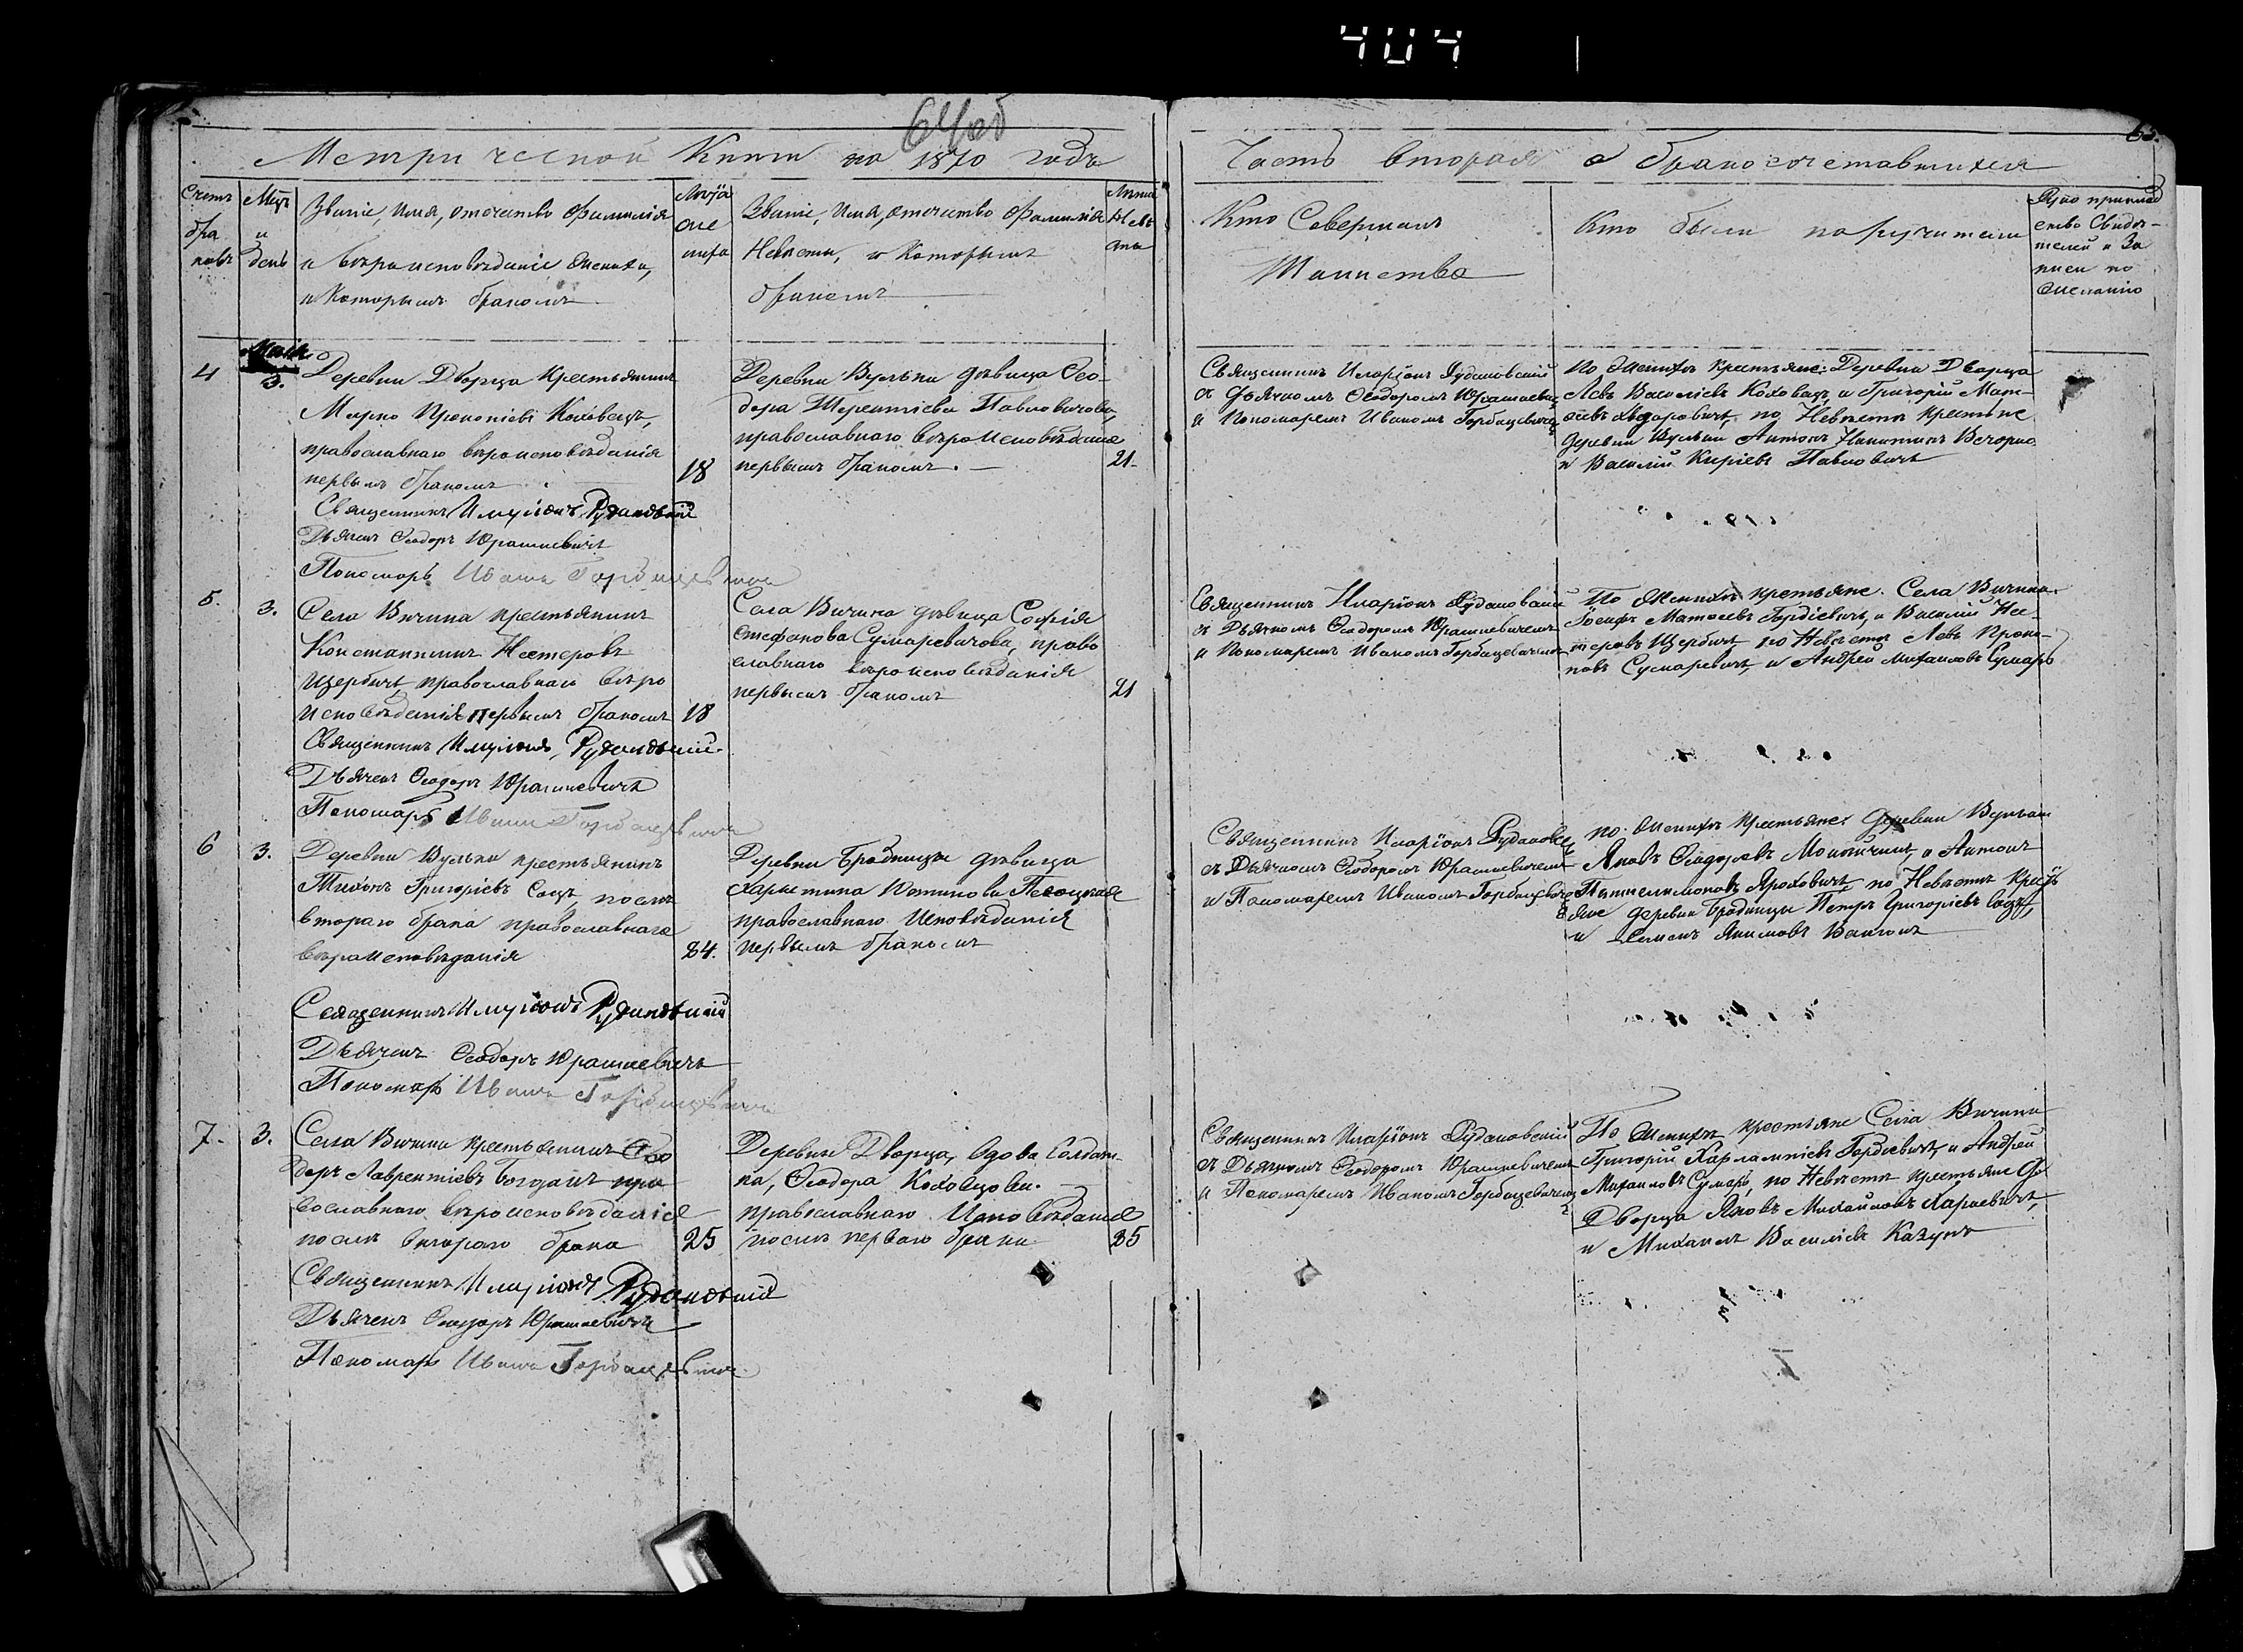 404
64об
65.
Метрической Книги на 1870 годъ
Часть вторая о бракосочетавшихся
Счетъ браковъ
Мцъ и день
Званіе, имя, отечество фамилія
и вѣроисповѣданіе жениха,
и которымъ бракомъ
Лѣта жениха
Званіе, имя, отечество фамилія
Невѣсты, и которымъ
бракомъ
Лѣта Невѣсты
Кто Совершалъ
Таинство
Кто были поручители
Рукоприкладство Свидѣтелей и Записи по Желанію
4
Мая
3.
Деревни Дворца Крестьянинъ
Марко Прокопіевъ Коховецъ,
православнаго вѣроисповѣданія
первымъ бракомъ
18
Священникъ Иларіонъ Рудаковскій
Дьячекъ Ѳеодоръ Юрашкевичъ
Пономарь Иванъ Горбацевичъ
Деревни Вульки дѣвица Ѳео-
дора Терентіева Павловичова,
православнаго вѣроисповѣданія
первымъ бракомъ.
21.
Священникъ Иларіонъ Рудаковскій
съ Дьячкомъ Ѳеодоромъ Юрашкевич
и Пономаремъ Иваномъ Горбацевичемъ
По Женихѣ крестьяне: Деревни Дворца
Левъ Василіевъ Коховецъ, и Григорій Мат-
по Невѣстѣ крестьяне
деревни Вульки Антонъ Никитинъ
и Василій Киріевъ Павловичъ
5.
3.
Села Вичина крестьянинъ
Константинъ Нестеровъ
Щербичъ, православнаго вѣро
исповѣданія первымъ бракомъ
18
Священникъ Иларіонъ Рудаковскій
Дьячекъ Ѳеодоръ Юрашкевичъ
Пономарь Иванъ Горбацевичъ
Села Вичина дѣвица Софія
Стефанова Сумаревичова, право
славнаго вѣроисповѣданія
первымъ бракомъ
21
Священникъ Иларіонъ Рудаковскій
съ Дьячкомъ Ѳеодоромъ Юрашкевичемъ
и Пономаремъ Иваномъ Горбацевичемъ
По Женихѣ крестьяне. Села Вичина
Іосифъ Матѳеевъ Гордіевичъ, и Василій Не-
стеровъ Щербичъ, по Невѣстѣ Левъ Проко-
повъ Сумаревичъ, и Андрей Михаиловъ Сумаръ
6
3.
Деревни Вульки крестьянинъ
Тихонъ Григоріевъ Соцъ, послѣ
втораго брака православнаго
вѣроисповѣданія
24.
Священникъ Иларіонъ Рудаковскій
Дьячекъ Ѳеодоръ Юрашкевичъ
Пономарь Иванъ Горбацевичъ
Деревни Бродницы дѣвица
Харитина
православнаго Исповѣданія
первымъ бракомъ
Священникъ Иларіонъ Рудаковск
съ Дьячкомъ Ѳеодоромъ Юрашкевичемъ
и Пономаремъ Иваномъ Горбацевичемъ
по Женихѣ крестьяне. деревни Вульки
Яковъ Ѳеодоровъ и Антонъ
Пантелимоновъ Яроховичъ, по Невѣстѣ Кресть
яне деревни Бродницы Петръ Григоріевъ
и Семенъ Якимовъ
7.
3.
Села Вичина крестьянинъ Ѳео
доръ Лаврентіевъ Богданъ пра
вославнаго вѣроисповѣданія
послѣ втораго брака
25
Священникъ Иларіонъ Рудаковскій
Дьячекъ Ѳеодоръ Юрашкевичъ
Пономарь Иванъ Горбацевичъ
Деревни Дворца, вдова Солдат-
ка, Ѳеодора Коховцова.
православнаго Исповѣданія
послѣ перваго брака
25
Священникъ Иларіонъ Рудаковскій
съ Дьячкомъ Ѳеодоромъ Юрашкевичемъ
и Пономаремъ Иваномъ Горбацевичемъ
По Женихѣ крестьяне Села Вичина
Григорій Харлампіевъ Гордіевичъ, и Андрей
Михаиловъ Сумаръ, по Невѣстѣ крестьяне Де
Дворца Яковъ Михайловъ Харкевичъ,
и Михаилъ Василіевъ Казунъ